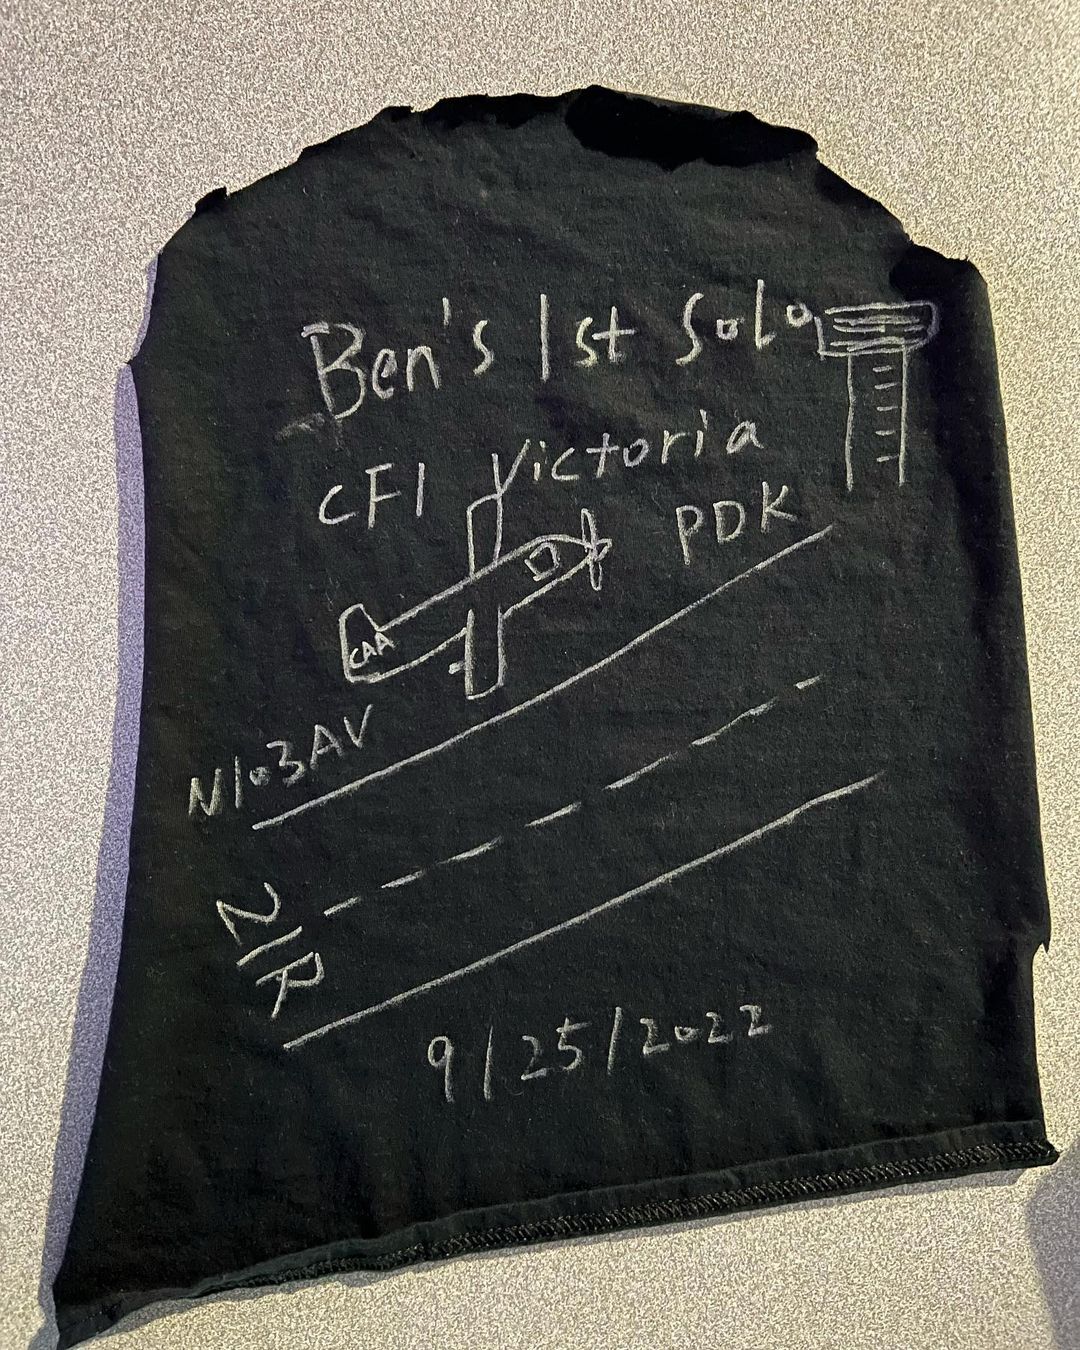 Ben's 1st Solo
CFI Victoria
PDK
CAA
N103AV
21R
9/25/2022